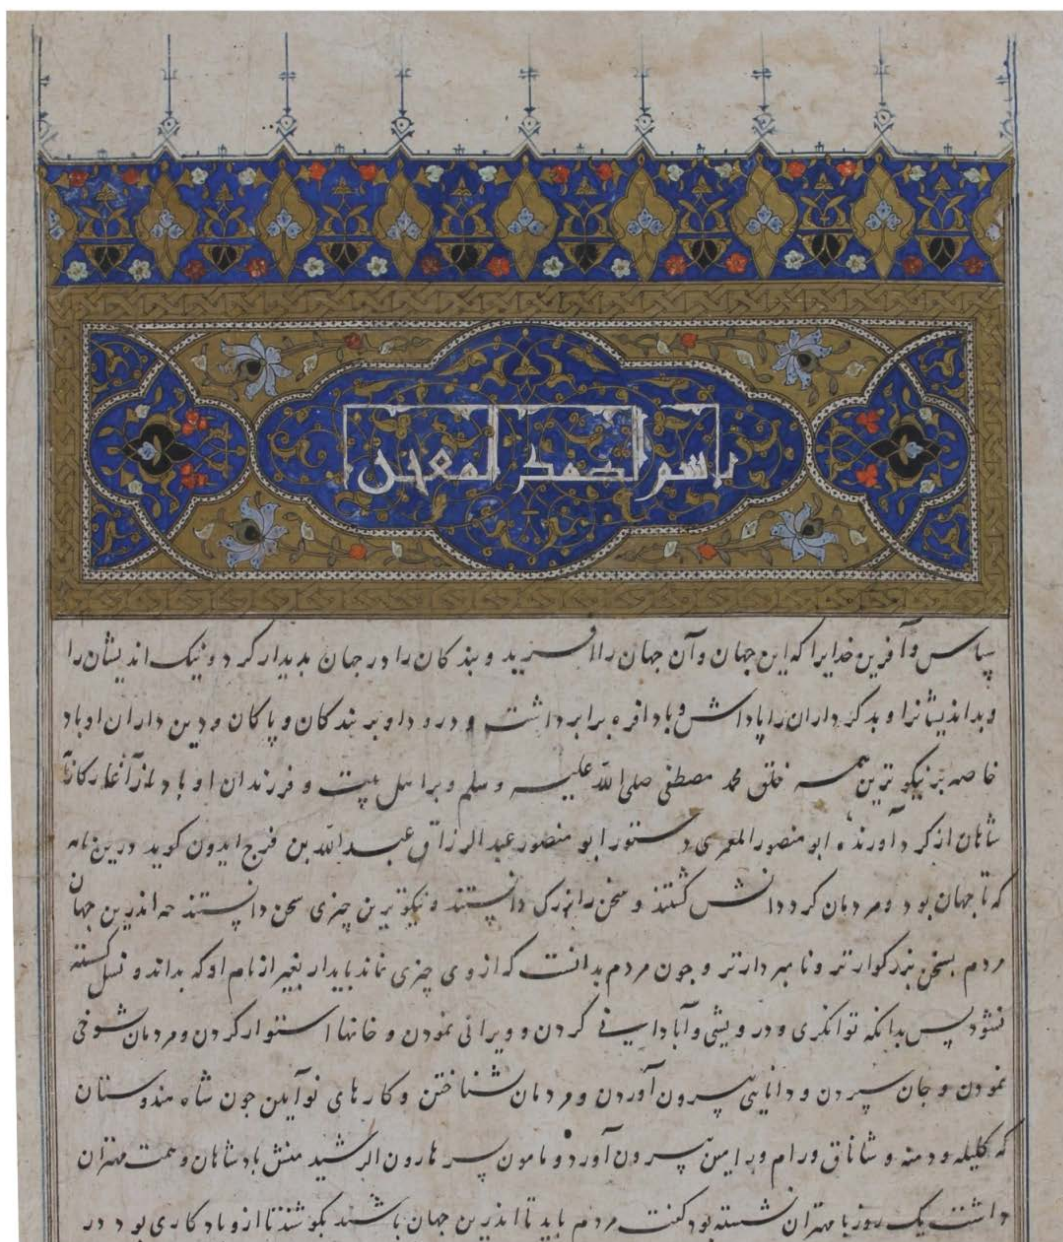 باسم احمد المعین
سپاس و آفرین خدایرا که این جهان و آن جهان را آفرید و بندکان را در جهان بدیدار کرد و نیک اندیشان را
و بداندیشانرا و بدکرداران را پاداش و بادافره برابر داشت و درود او بر بندکان و پاکان و دین داران او باد
خاصه بر نیکو ترین همه خلق محمد مصطفی صلی الله علیه و سلم و بر اهل بیت و فرزندان او باد آغاز کارنامه
شاهان از کرد آورنده ابو منصور المعمری دستور ابو منصور عبد الرزاق عبد الله بن فرج ایدون کوید درین نامه
که تا جهان بود و مردمان کرد دانش کشتند و سخن را بزرک دانستند و نیکو ترین چیزی سخن دانستند چه اندرین جهان
مردم بسخن بزرکوار تر و نامبردارتر و جون مردم بدانست که از وی چیزی نماند بایدار بغیر از نام او که بداند و نسل کسسته
نشود پس بدانکه توانکری و درویشی و آبادانی کردن و ویرانی نمودن و خانها استوار کردن و مردمان شوخی
نمودن و جان سپردن و دانایی بیرون آوردن و مردمان شناختن و کارهای نو آیین جون شاه هندوستان
که کلیله و دمنه و شاناق و رام و رامین بیرون آورد و مامون پسر هارون الرشید منش بادشاهان و همت مهتران
داشت یک روز با مهتران نشسته بود کفت مردم باید تا اندرین جهان باشند بکوشند تا ازو یادکاری بود در